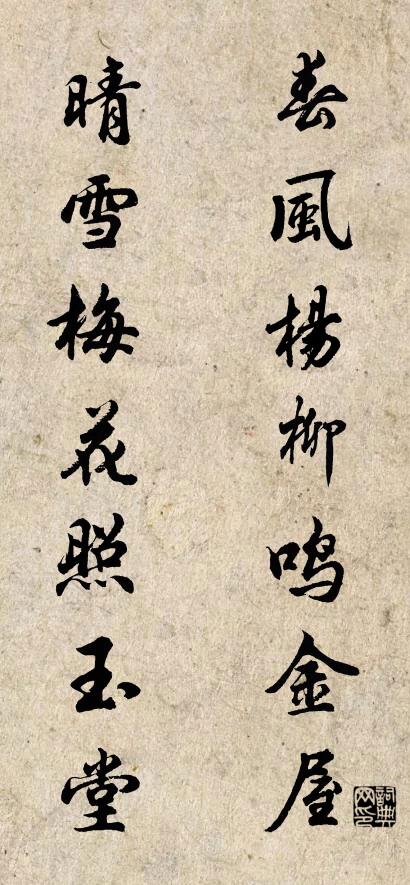 春風楊柳鳴金屋
晴雪梅花照玉堂
詞典網印